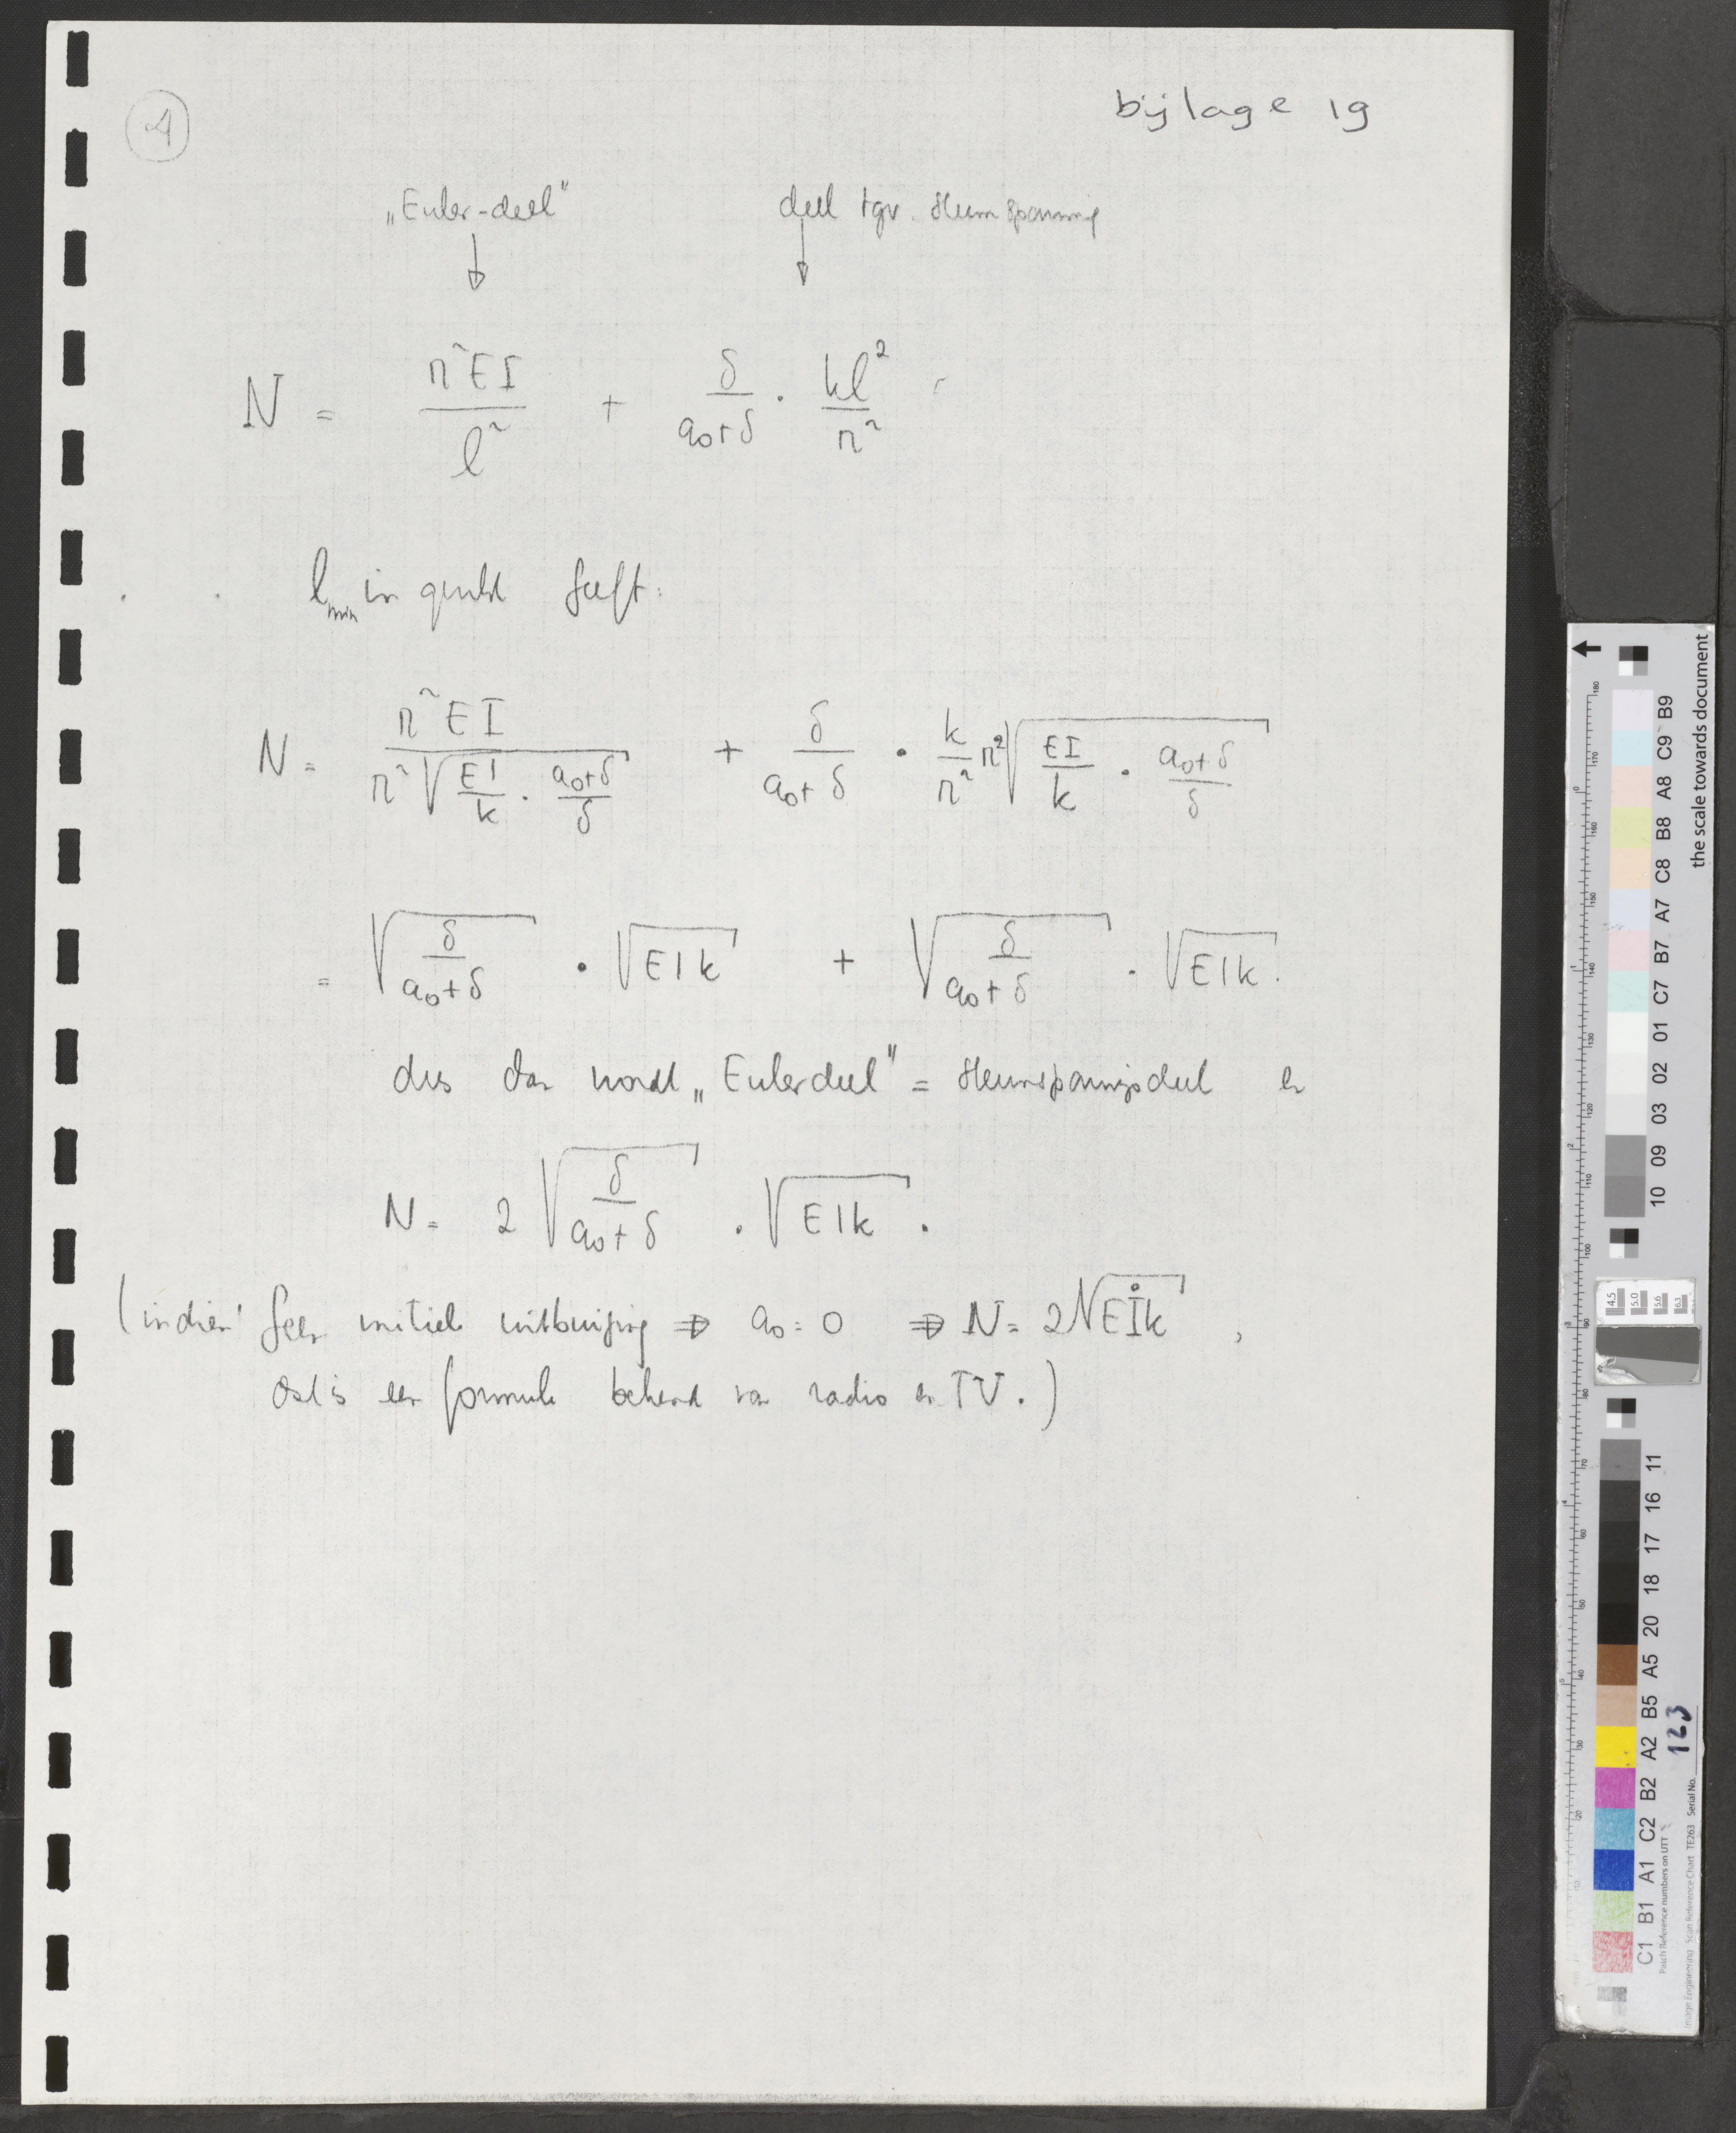 4
bijlage 19
„Euler-deel”
deel tgv. steunspanning
N = π²EI / l² + δ / (a₀+δ) · kl² / π²
l min in gevuld geeft:
N = π²EI / (π² √(EI/k · (a₀+δ)/δ)) + δ / (a₀+δ) · k/π² π² √(EI/k · (a₀+δ)/δ)
= √(δ / (a₀+δ)) · √(EIk) + √(δ / (a₀+δ)) · √(EIk).
dus dan wordt „Eulerdeel” = steunspanningsdeel en
N = 2 √(δ / (a₀+δ)) · √(EIk).
(indien geen initiele uitbuiging ⇒ a₀ = 0 ⇒ N = 2√(EIk),
dat is een formule bekend van radio en TV.)
the scale towards document
180 170 160 150 140 130 120 110 100 90 80 70 60 50 40 30 20 10
B9 C9 A8 B8 C8 A7 B7 C7 01 02 03 09 10
4.5 5.0 5.6 6.3
11 16 17 18 20 A5 B5 A2 B2 C2 A1 B1 C1
Patch Reference numbers on UTT
Image Engineering Scan Reference Chart TE263 Serial No. 123